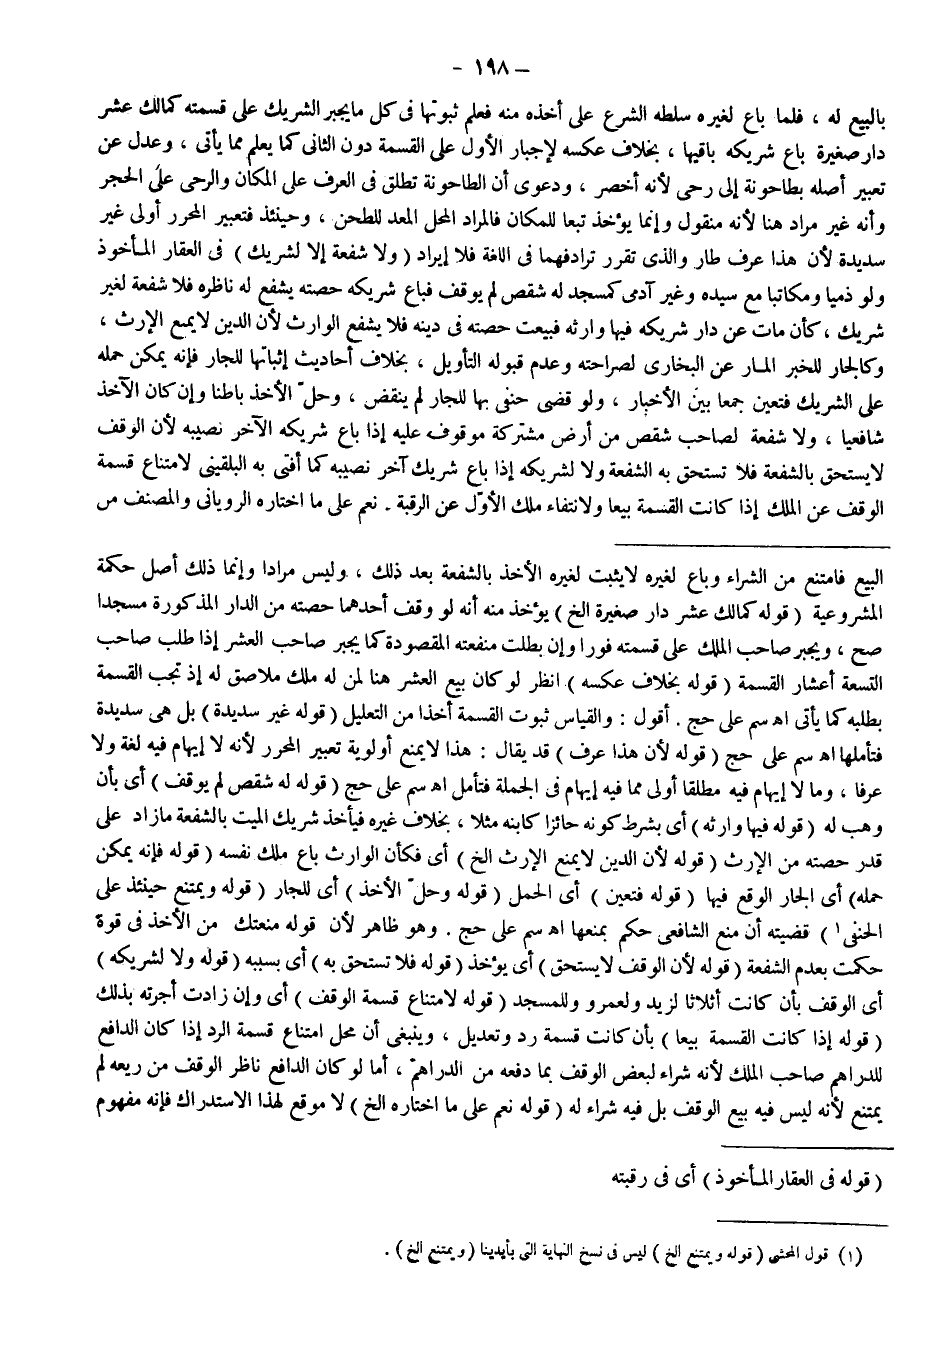 – ١٩٨ –
بالبيع له ، فلما باع لغيره سلطه الشرع على أخذه منه فعلم ثبوتها فى كل مايجبر الشريك على قسمته كمالك عشر
دار صغيرة باع شريكه باقيها ، بخلاف عكسه لإجبار الأول على القسمة دون الثانى كما يعلم مما يأتى ، وعدل عن
تعبير أصله بطاحونة إلى رحى لأنه أخصر ، ودعوى أن الطاحونة تطلق فى العرف على المكان والرحى على الحجر
وأنه غير مراد هنا لأنه منقول وإنما يؤخذ تبعا للمكان فالمراد المحل المعد للطحن ، وحينئذ فتعبير المحرر أولى غير
سديدة لأن هذا عرف طار والذى تقرر ترادفهما فى اللغة فلا إيراد ( ولا شفعة إلا لشريك ) فى العقار المـأخوذ
ولو ذميا ومكاتبا مع سيده وغير آدمى كمسجد له شقص لم يوقف فباع شريكه حصته يشفع له ناظره فلا شفعة لغير
شريك ، كأن مات عن دار شريكه فيها وارثه فبيعت حصته فى دينه فلا يشفع الوارث لأن الدين لايمنع الإرث ،
وكالجار للخبر المـار عن البخارى لصراحته وعدم قبوله التأويل ، بخلاف أحاديث إثباتها للجار فإنه يمكن حمله
على الشريك فتعين جمعا بين الأخبار ، ولو قضى حنفى بها للجار لم ينقض ، وحلّ الأخذ باطنا وإن كان الآخذ
شافعيا ، ولا شفعة لصاحب شقص من أرض مشتركة موقوف عليه إذا باع شريكه الآخر نصيبه لأن الوقف
لايستحق بالشفعة فلا تستحق به الشفعة ولا لشريكه إذا باع شريك آخر نصيبه كما أفتى به البلقينى لامتناع قسمة
الوقف عن الملك إذا كانت القسمة بيعا ولانتفاء ملك الأوّل عن الرقبة . نعم على ما اختاره الرويانى والمصنف من
البيع فامتنع من الشراء وباع لغيره لايثبت لغيره الأخذ بالشفعة بعد ذلك ، وليس مرادا وإنما ذلك أصل حكمة
المشروعية ( قوله كمالك عشر دار صغيرة الخ ) يؤخذ منه أنه لو وقف أحدهما حصته من الدار المذكورة مسجدا
صح ، ويجبر صاحب الملك على قسمته فورا وإن بطلت منفعته المقصودة كما يجبر صاحب العشر إذا طلب صاحب
التسعة أعشار القسمة ( قوله بخلاف عكسه ) انظر لو كان بيع العشر هنا لمن له ملك ملاصق له إذ تجب القسمة
بطلبه كما يأتى اهـ سم على حج . أقول : والقياس ثبوت القسمة أخذا من التعليل ( قوله غير سديدة ) بل هى سديدة
فتأملها اهـ سم على حج ( قوله لأن هذا عرف ) قد يقال : هذا لايمنع أولوية تعبير المحرر لأنه لا إيهام فيه لغة ولا
عرفا ، وما لا إيهام فيه مطلقا أولى مما فيه إيهام فى الجملة فتأمل اهـ سم على حج ( قوله له شقص لم يوقف ) أى بأن
وهب له ( قوله فيها وارثه ) أى بشرط كونه حائزا كابنه مثلا ، بخلاف غيره فيأخذ شريك الميت بالشفعة مازاد على
قدر حصته من الإرث ( قوله لأن الدين لايمنع الإرث الخ ) أى فكأن الوارث باع ملك نفسه ( قوله فإنه يمكن
حمله) أى الجار الوقع فيها ( قوله فتعين ) أى الحمل ( قوله وحلّ الأخذ ) أى للجار ( قوله ويمتنع حينئذ على
الحنفى١ ) قضيته أن منع الشافعى حكم بمنعها اهـ سم على حج . وهو ظاهر لأن قوله منعتك من الأخذ فى قوة
حكمت بعدم الشفعة ( قوله لأن الوقف لايستحق ) أى يؤخذ ( قوله فلا تستحق به ) أى بسببه ( قوله ولا لشريكه )
أى الوقف بأن كانت أثلاثا لزيد ولعمرو وللمسجد ( قوله لامتناع قسمة الوقف ) أى وإن زادت أجرته بذلك
( قوله إذا كانت القسمة بيعا ) بأن كانت قسمة رد وتعديل ، وينبغى أن محل امتناع قسمة الرد إذا كان الدافع
للدراهم صاحب الملك لأنه شراء لبعض الوقف بما دفعه من الدراهم ، أما لو كان الدافع ناظر الوقف من ريعه لم
يمتنع لأنه ليس فيه بيع الوقف بل فيه شراء له ( قوله نعم على ما اختاره الخ ) لا موقع لهذا الاستدراك فإنه مفهوم
( قوله فى العقار المـأخوذ ) أى فى رقبته
(١) قول المحشى ( قوله ويمتنع الخ ) ليس فى نسخ النهاية التى بأيدينا ( ويمتنع الخ ) .